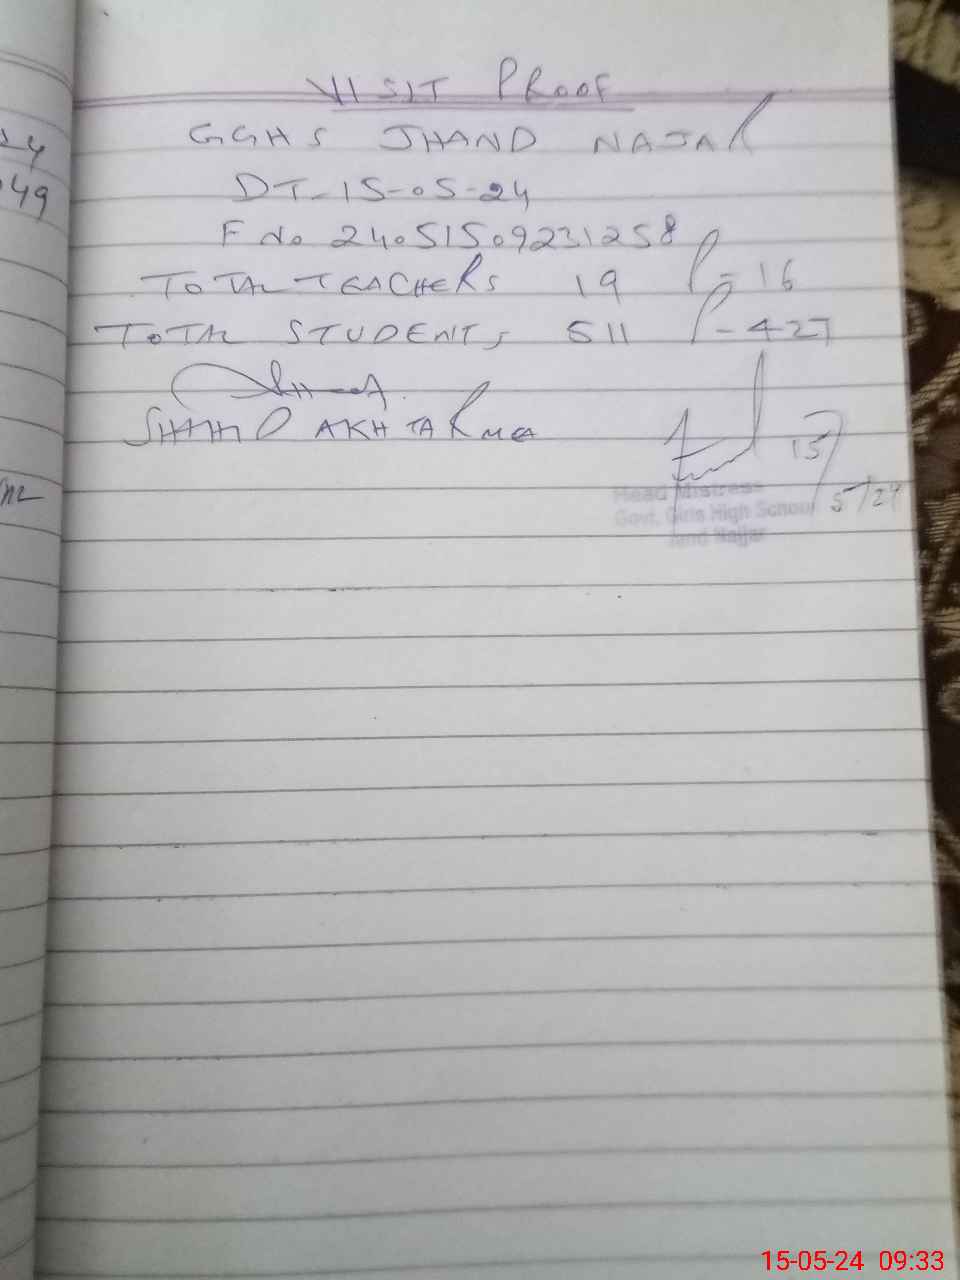 24
49
VISIT PROOF
GGHS JHAND NAJAR
DT-15-05-24
F No 24051509231258
TOTAL TEACHERS 19 P-16
TOTAL STUDENTS 511 P-427
SHAHID AKHTAR MEA
15/5/24
Head Mistress
Govt. Girls High School
Jand Najjar
15-05-24 09:33